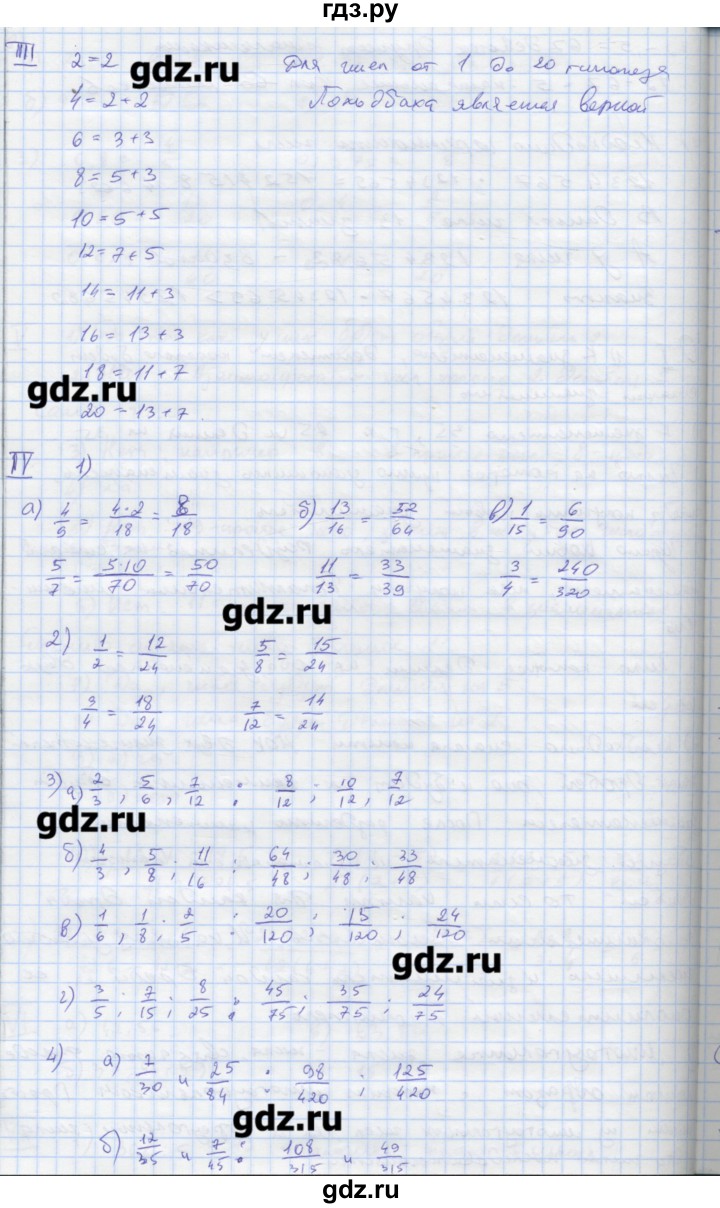 гдз.ру
III 2=2 Для чисел от 1 до 20 гипотеза
gdz.ru
4=2+2 Гольдбаха является верной
6 = 3+3
8 = 5+3
10 = 5+5
12 = 7+5
14 = 11+3
16 = 13+3
18 = 11+7
gdz.ru
20 = 13+7.
IV 1)
а) 4/9 = 4·2/18 = 8/18 б) 13/16 = 52/64 в) 1/15 = 6/90
5/7 = 5·10/70 = 50/70 11/13 = 33/39 3/4 = 240/320
gdz.ru
2) 1/2 = 12/24 5/8 = 15/24
3/4 = 18/24 7/12 = 14/24
3) а) 2/3, 5/6, 7/12 : 8/12; 10/12, 7/12
gdz.ru
б) 4/3, 5/8; 11/16 : 64/48; 30/48; 33/48
в) 1/6, 1/8; 2/5 : 20/120; 15/120; 24/120
gdz.ru
г) 3/5; 7/15; 8/25 : 45/75; 35/75; 24/75
4) а) 7/30 и 25/84 : 98/420; 125/420
gdz.ru
б) 12/35 и 7/45 : 108/315 и 49/315
gdz.ru